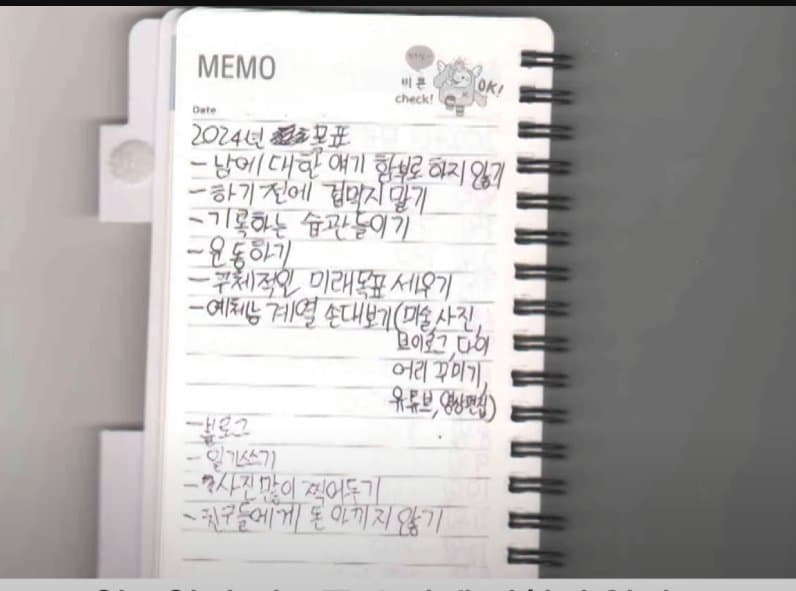 MEMO
비 튼
check!
OK!
Date
2024년 목표
- 남에 대한 얘기 함부로 하지 않기
- 하기 전에 겁먹지 말기
- 기록하는 습관들이기
- 운동하기
- 구체적인 미래목표 세우기
- 예체능 계열 손대보기(미술, 사진,
브이로그, 다이
어리 꾸미기,
유튜브, 영상편집)
- 블로그
- 일기쓰기
- 사진 많이 찍어두기
- 친구들에게 돈 아끼지 않기